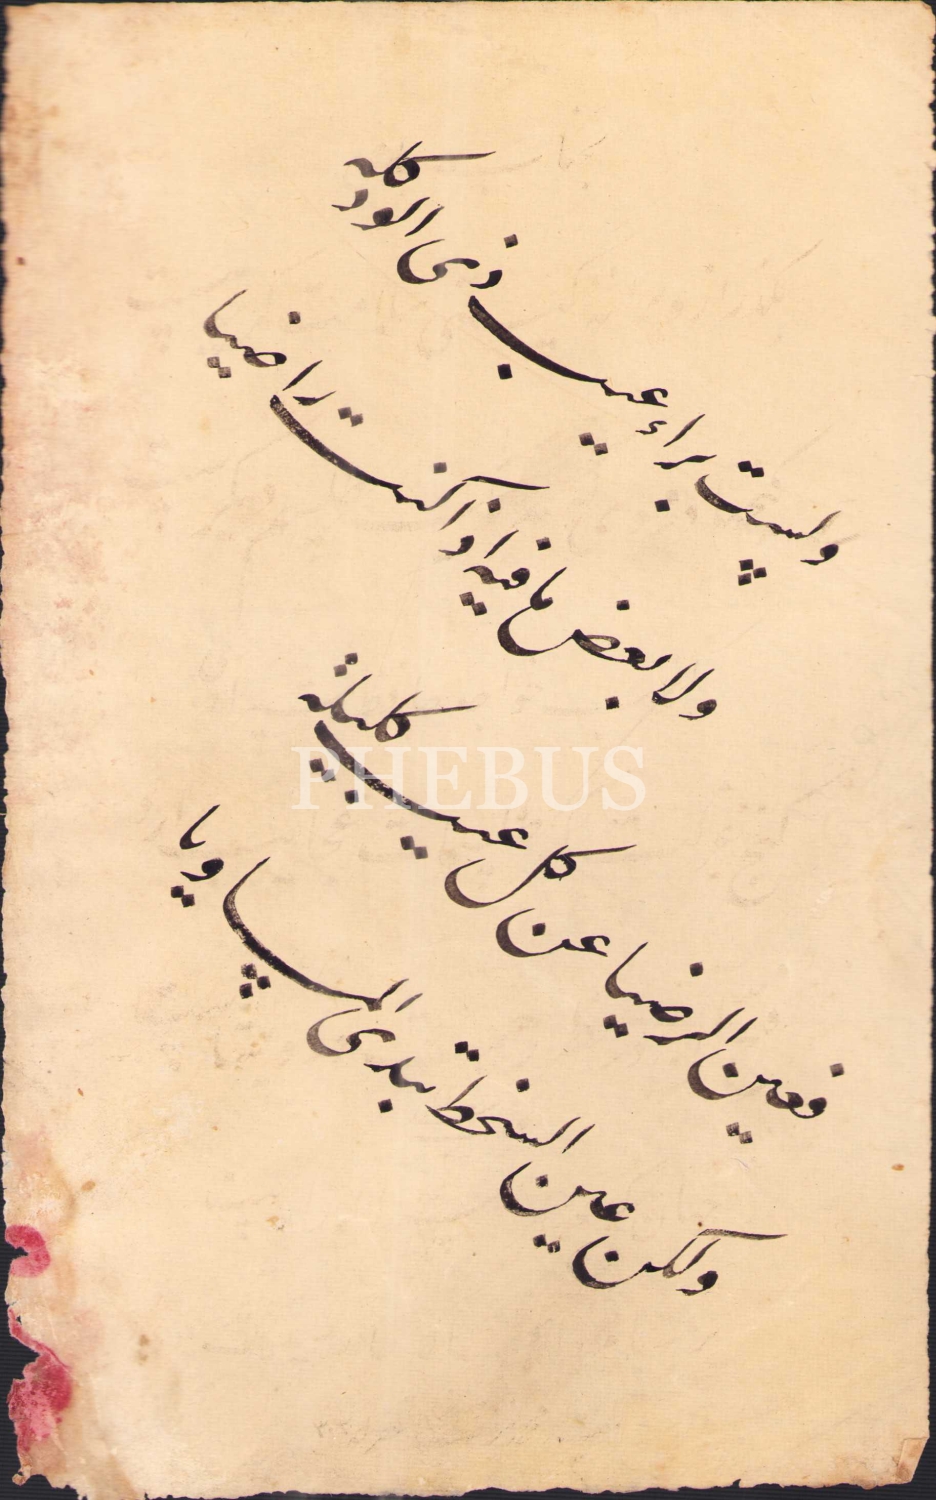 ولست براء عيب ذى الود كله
ولا بعض ما فيه اذا كنت راضيا
فعين الرضا عن كل عيب كليلة
ولكن عين السخط تبدى المساويا
PHEBUS